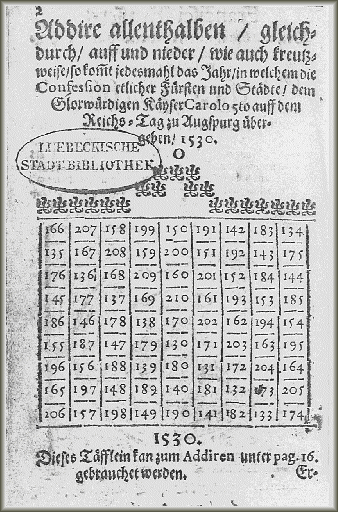 Addire allenthalben / gleich-
durch / auff und nieder / wie auch kreutz-
weise / so komt jedesmahl das Jahr / in welchem die
Confession etlicher Fürsten und Städte / dem
Glorwürdigen Käyser Carolo 5to auff dem
Reichs-Tag zu Augspurg über-
geben / 1530.
LUEBECKISCHE
STADT-BIBLIOTHEK
166 207 158 199 150 191 142 183 134
135 167 208 159 200 151 192 143 175
176 136 168 209 160 201 152 184 144
145 177 137 169 210 161 193 153 185
186 146 178 138 170 202 162 194 154
155 187 147 179 130 171 203 163 195
196 156 188 139 180 131 172 204 164
165 197 148 189 140 181 132 173 205
206 157 198 149 190 141 182 133 174
1530.
Dieses Täfflein kan zum Addiren unter pag. 16.
gebrauchet werden. Er-